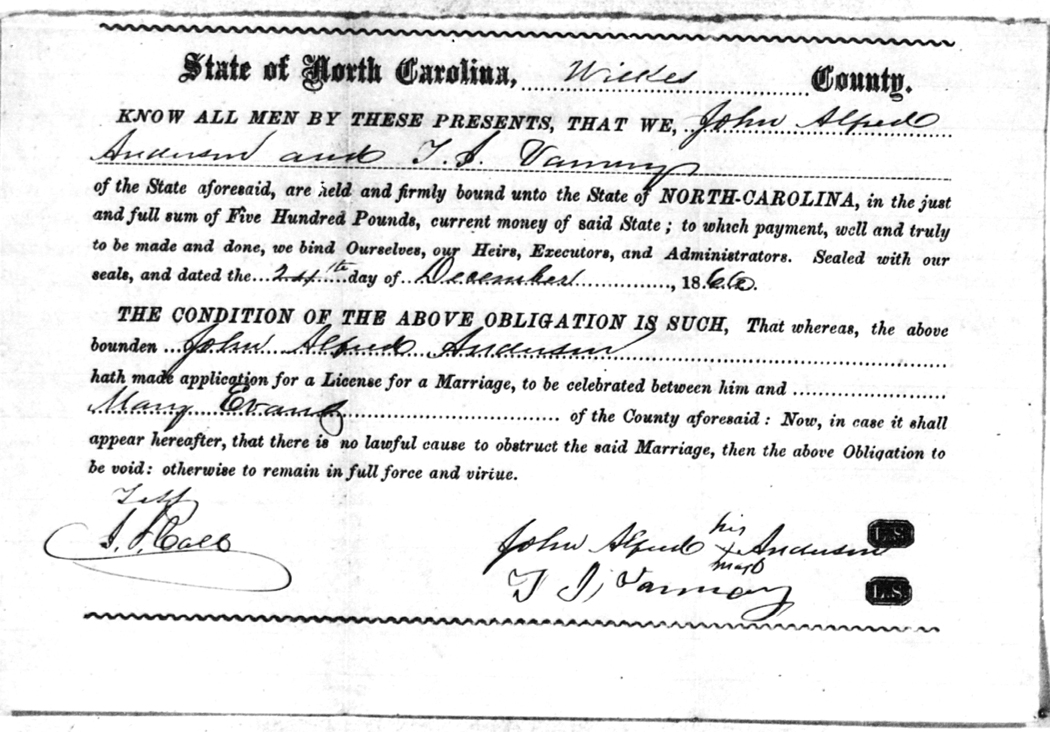 State of North Carolina, Wilkes County.
KNOW ALL MEN BY THESE PRESENTS, THAT WE, John Alfred
Anderson and T. J. Vannoy
of the State aforesaid, are held and firmly bound unto the State of NORTH-CAROLINA, in the just
and full sum of Five Hundred Pounds, current money of said State; to which payment, well and truly
to be made and done, we bind Ourselves, our Heirs, Executors, and Administrators. Sealed with our
seals, and dated the 24th day of December, 1866.
THE CONDITION OF THE ABOVE OBLIGATION IS SUCH, That whereas, the above
bounden John Alfred Anderson
hath made application for a License for a Marriage, to be celebrated between him and
Mary Evans of the County aforesaid: Now, in case it shall
appear hereafter, that there is no lawful cause to obstruct the said Marriage, then the above Obligation to
be void: otherwise to remain in full force and virtue.
Test
his
John Alfred x Anderson L.S.
mark
T J Vannoy L.S.